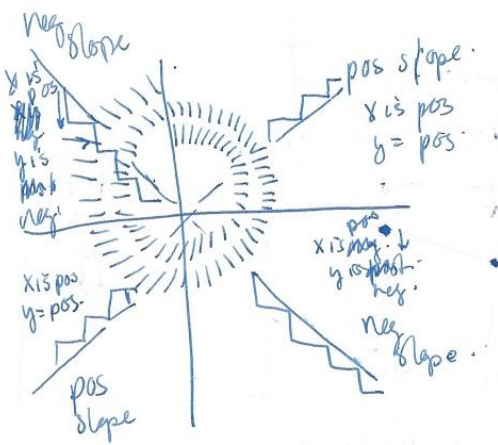 neg
slope
x is
pos
y is
neg.
pos slope.
x is pos
y = pos.
x is pos
y = pos.
pos
slope
pos
x is neg. ↓
y is
neg.
neg
slope.